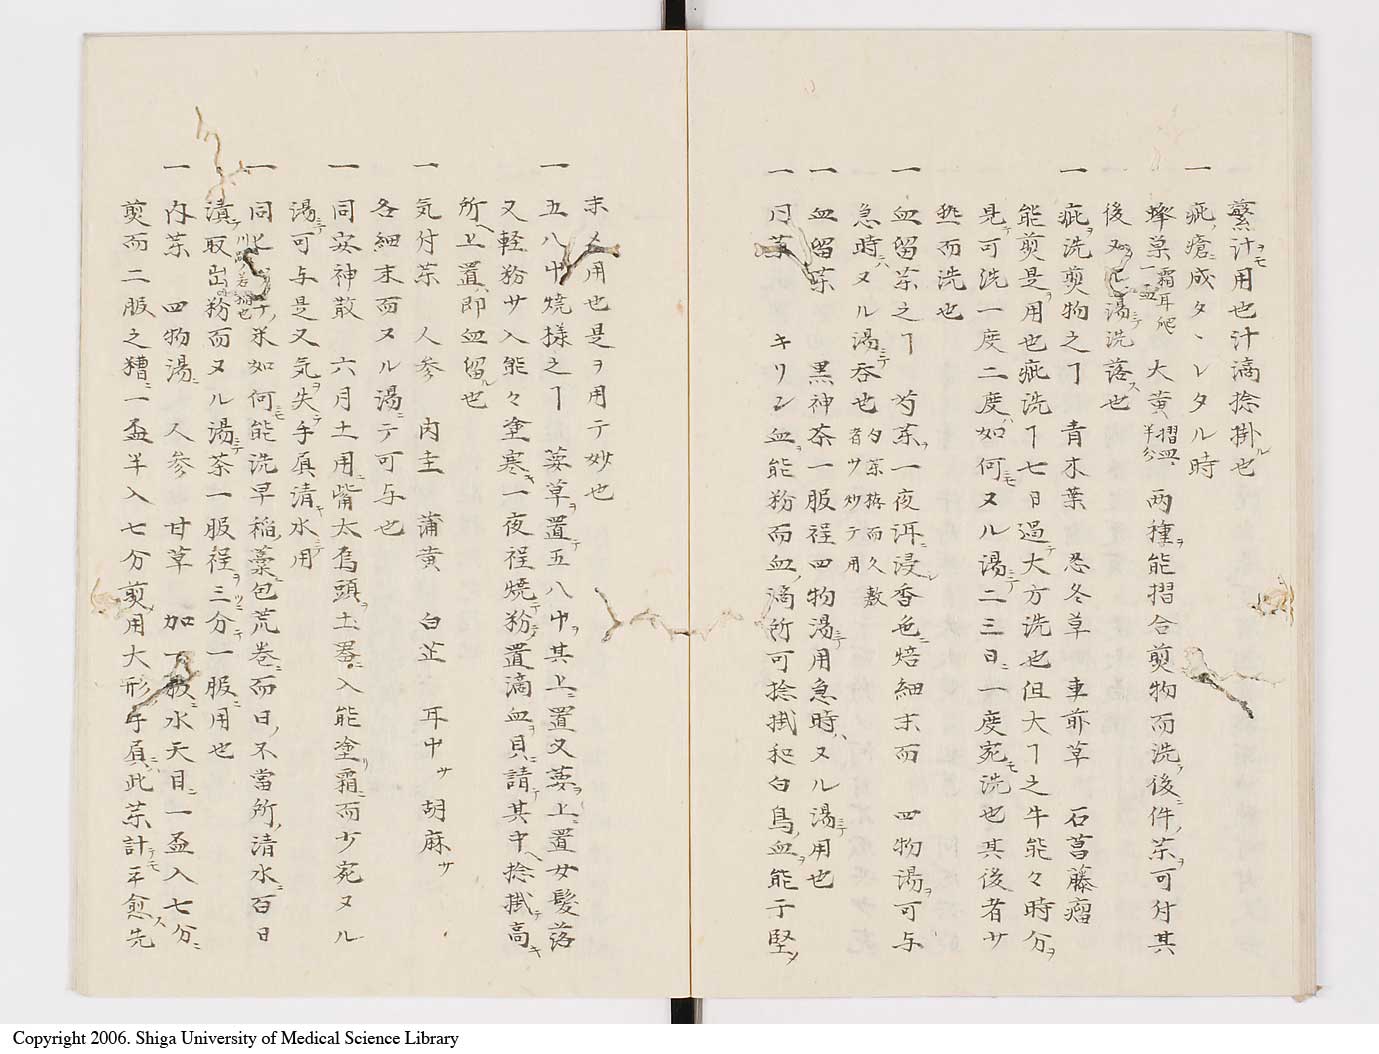 繁汁ヲモ用也汁滴捻掛ル也
一 疵瘡ニ成タヽレタル時
蜂巣 霜耳爬 一皿 大黄 摺皿 半分 両種ヲ能摺合煎物而洗テ後ニ件ノ茶ヲ可付其
後又ヌル湯ニテ洗落ス也
一 疵ヲ洗煎物之ヿ 青木葉 忍冬草 車前草 石菖藤瘤
能煎是ヲ用也疵洗ヿ七日過テ大方洗也但大ヿ之牛能々時分ヲ
見テ可洗一度二度ハ如何ニモヌル湯ニテ二三日ニ一度宛モ洗也其後者サ
熱而洗也
一 血留茶之ヿ 芍茶ヲ一夜洱ニ浸シ香色ニ焙細末而 四物湯ヲ可与
急時ハヌル湯ニテ呑也
一 血留茶 黒神茶一服程四物湯ニテ用急時ハヌル湯ニテ用也
一 同茶 キリン血ヲ能粉而血ノ滴所可捻掛和白鳥ノ血ヲ能干堅メ
末メ用也是ヲ用テ妙也
一 五八中焼様之ヿ 葽草ヲ置テ五八中ヲ其上ニ置又葽ヲ上ニ置女髪落
又軽粉サ入能々塗寒キ一夜程焼テ粉テ置滴血ヲ貝ニ請テ其中ヘ捻掛テ高キ
所ヘ上置ハ即血留ル也
一 気付茶 人参 肉圭 蒲黄 白芷 耳中サ 胡麻サ
各細末而ヌル湯ニテ可与也
一 同安神散 六月土用ニ嘴太烏頭ヲ土器ニ入能塗リ霜ニ而少宛ヌル
湯ニテ可与是又気ヲ失テ手負清キ水ニテ用
一 米如何ニモ能洗早稲ノ藁ニ包荒巻ニ而日ノ不當所ノ清水ニ百日
漬テ取出粉而ヌル湯ニテ茶一服程ヲ三ツニ分キ一服ニ用也
一 内茶 四物湯ニ 人参 甘草 加一服ニ水天目ニ一盃入七分ニ
煎而二服之糟ニ一盃半入七分煎用大形ノ手負ニハ此茶計テモ平愈ス先
Copyright 2006. Shiga University of Medical Science Library